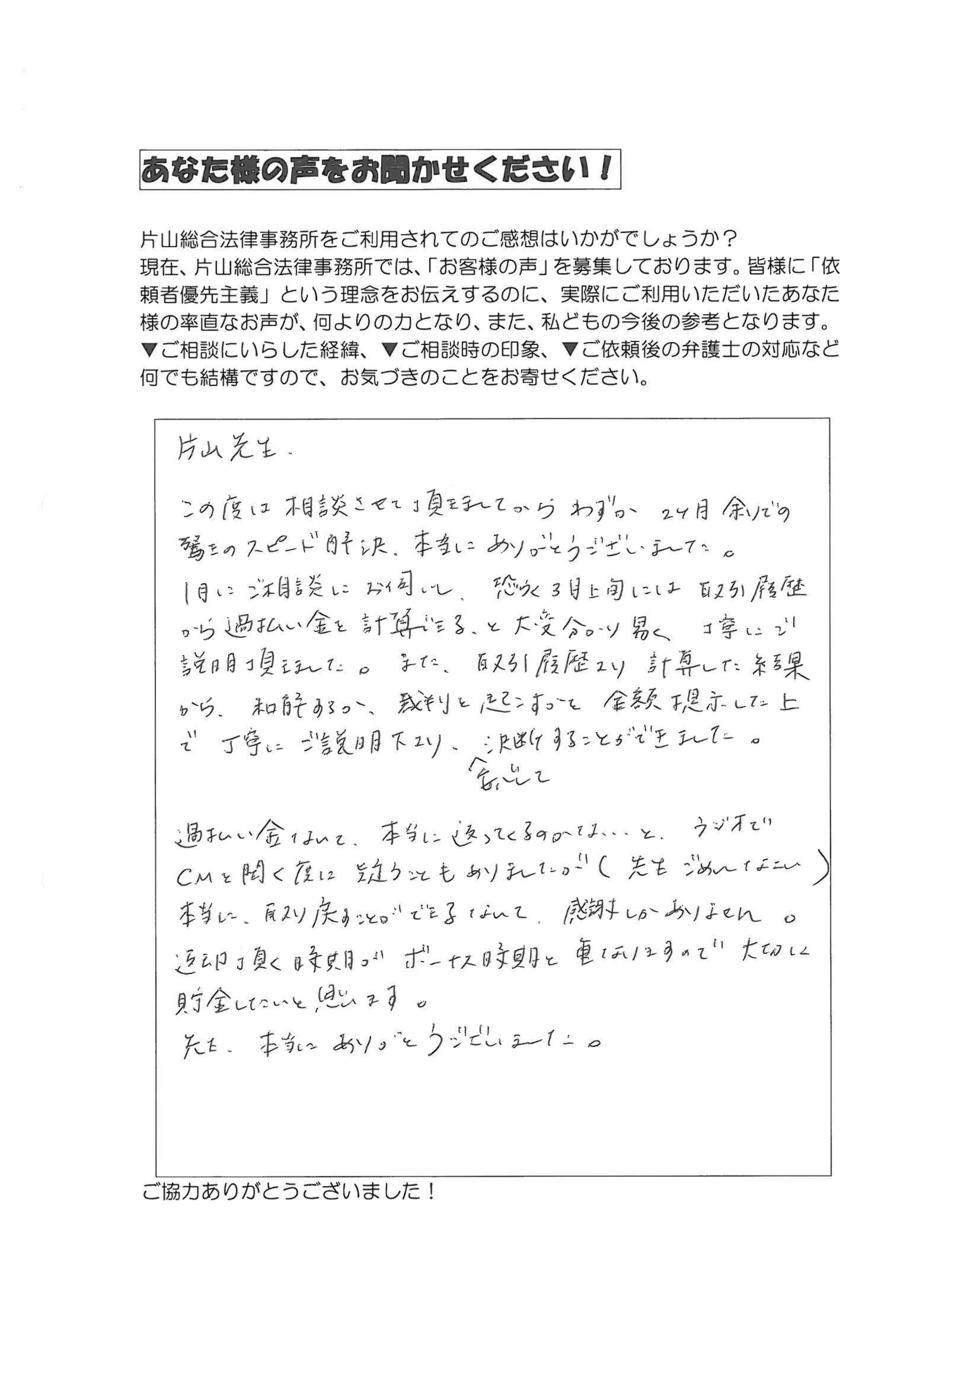 あなた様の声をお聞かせください！
片山総合法律事務所をご利用されてのご感想はいかがでしょうか？
現在、片山総合法律事務所では、「お客様の声」を募集しております。皆様に「依
頼者優先主義」という理念をお伝えするのに、実際にご利用いただいたあなた
様の率直なお声が、何よりの力となり、また、私どもの今後の参考となります。
▼ご相談にいらした経緯、▼ご相談時の印象、▼ご依頼後の弁護士の対応など
何でも結構ですので、お気づきのことをお寄せください。
片山先生.
この度は相談させて頂きましてからわずか2ヶ月余りでの
驚きのスピード解決、本当にありがとうございました。
1月にご相談にお伺いし、恐らく3月上旬には取引履歴
から過払い金を計算できる、と大変分かり易く、丁寧にご
説明頂きました。また、取引履歴より計算した結果
から、和解するか、裁判を起こすかを金額提示した上
で丁寧にご説明下さり、決断することができました。
安心して
過払い金なんて、本当に返ってくるのかな…と、ラジオで
CMを聞く度に疑うこともありましたが(先生ごめんなさい)
本当に、取り戻すことができるなんて、感謝しかありません。
返却頂く時期がボーナス時期と重なりますので大切に
貯金したいと思います。
先生、本当にありがとうございました。
ご協力ありがとうございました！